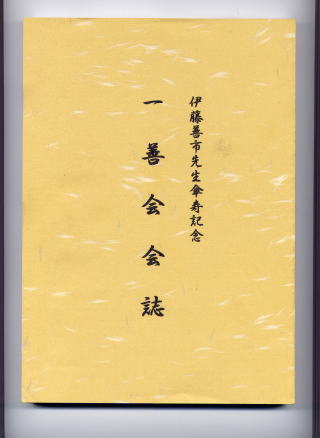 伊藤善市先生傘寿記念
一善会会誌